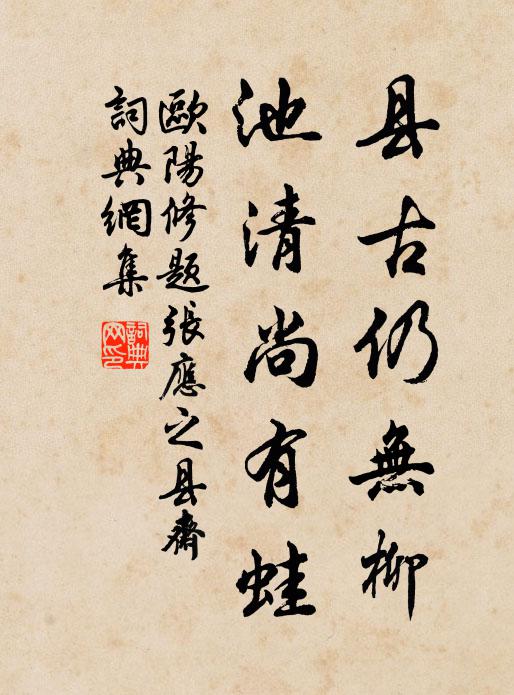 县古仍無柳
池清尚有蛙
歐陽修题張應之县齋
詞典網集
詞典网印